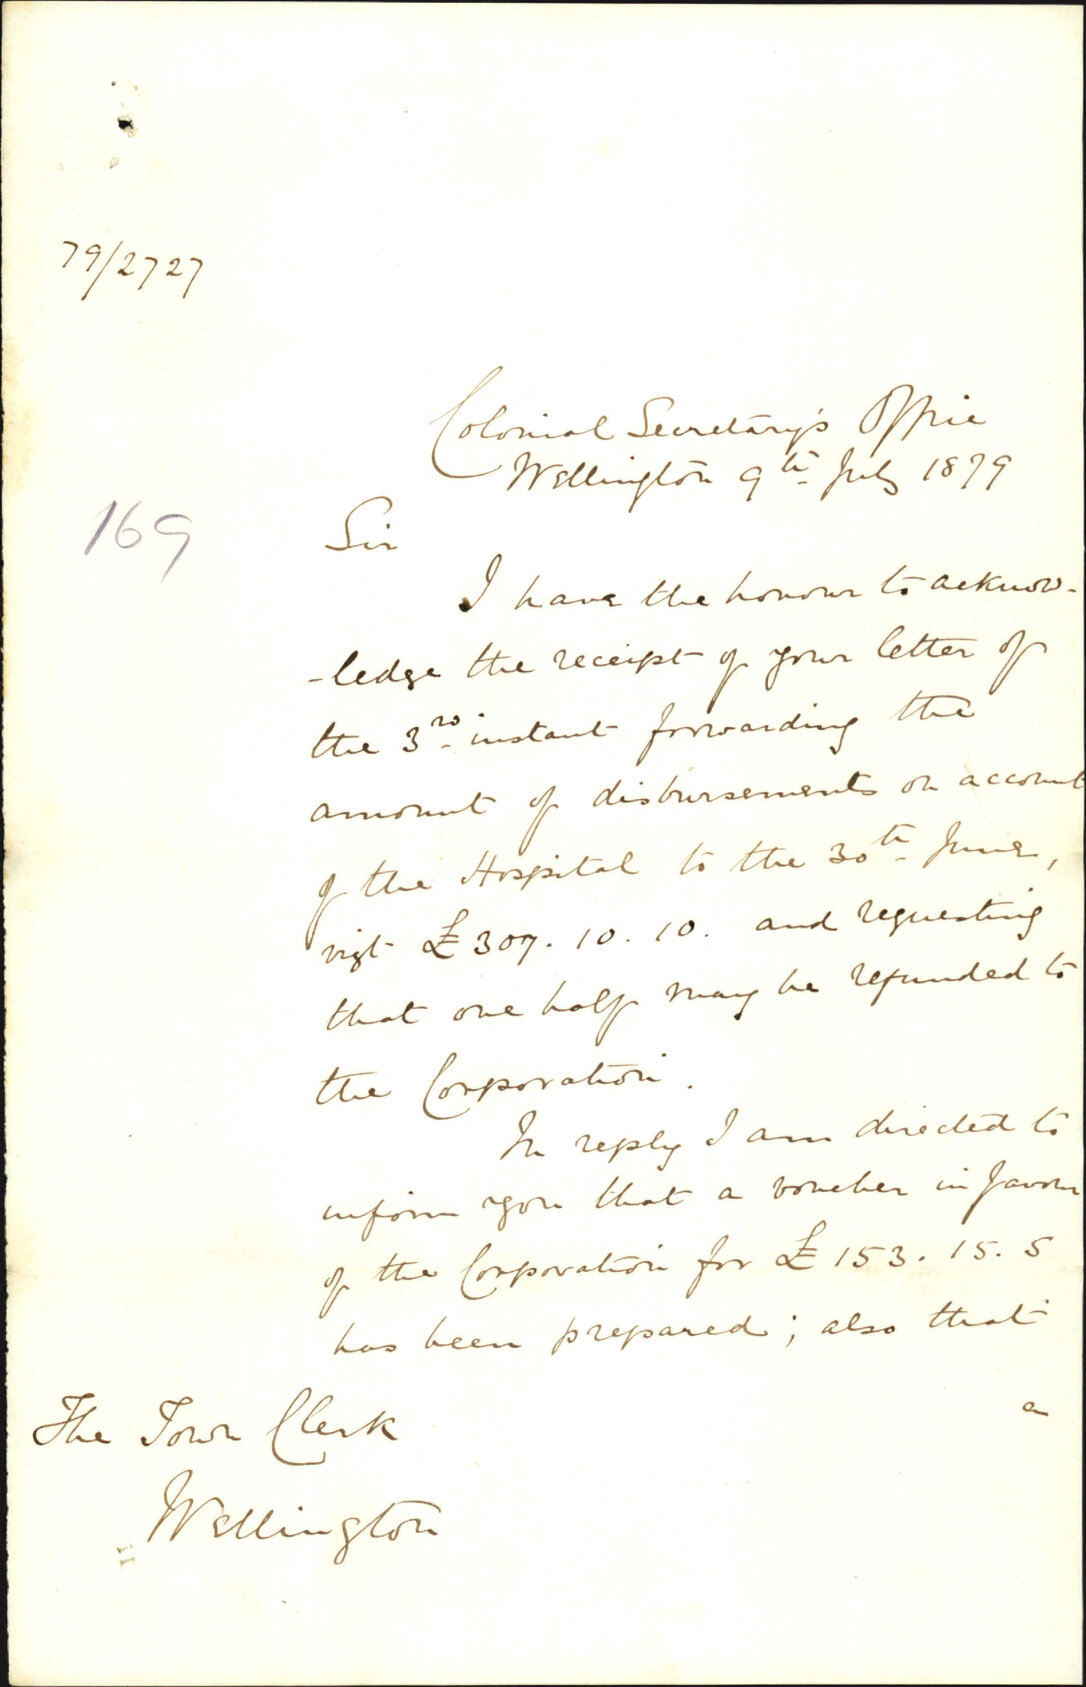 79/2727
Colonial Secretary's Office
Wellington 9th July 1879
169
Sir
I have the honour to acknow-
-ledge the receipt of your letter of
the 3rd instant forwarding the
amount of disbursements on account
of the Hospital to the 30th June,
vizt £307.10.10. and requesting
that one half may be refunded to
the Corporation.
In reply I am directed to
inform you that a voucher in favour
of the Corporation for £153.15.5
has been prepared; also that
a
The Town Clerk
Wellington